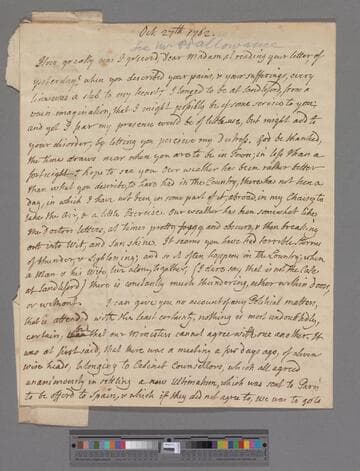 Oct. 27th 1762.
How greatly was I grieved, Dear Madam, at reading your letter of
yesterday! when you described your pains, & your sufferings, every
line was a stab to my heart; I longed to be at Sandleford, from a
vain imagination, that I might possibly be of some service to you;
and yet I fear my presence would be of little use, but might add to
your disorder, by letting you perceive my Distress. God be thanked,
the time draws near when you are to be in Town; in less than a
fortnight I hope to see you. Our weather has been rather better
than what you describe, to have had in the Country, there has not been a
day, in which I have not been, in some part of it, abroad in my Chaise, to
take the Air, & a little Exercise. Our weather has been somewhat like
the Doctors letters, at times pretty foggy and obscure, & then breaking
out into Wit, and Sun shine. It seems you have had terrible storms
of thunder, & Lightening; and so it often happens in the Country; when
a Man & his Wife live alone together, (I dare say that is not the Case
at Sandleford) there is constantly much thundering, either within doors,
or without. I can give you no account of any Political matter,
that is attended with the least certainty, nothing is more undoubtedly,
certain than that our Ministers cannot agree with one another. It
was at first said, that there was a meeting a few days ago, of eleven
wise heads, belonging to Cabinet Counsellors, which all agreed
unanimously in settling a new Ultimatum, which was sent to Paris
to be offered to Spain, & which if they did not agree to, we was to go to